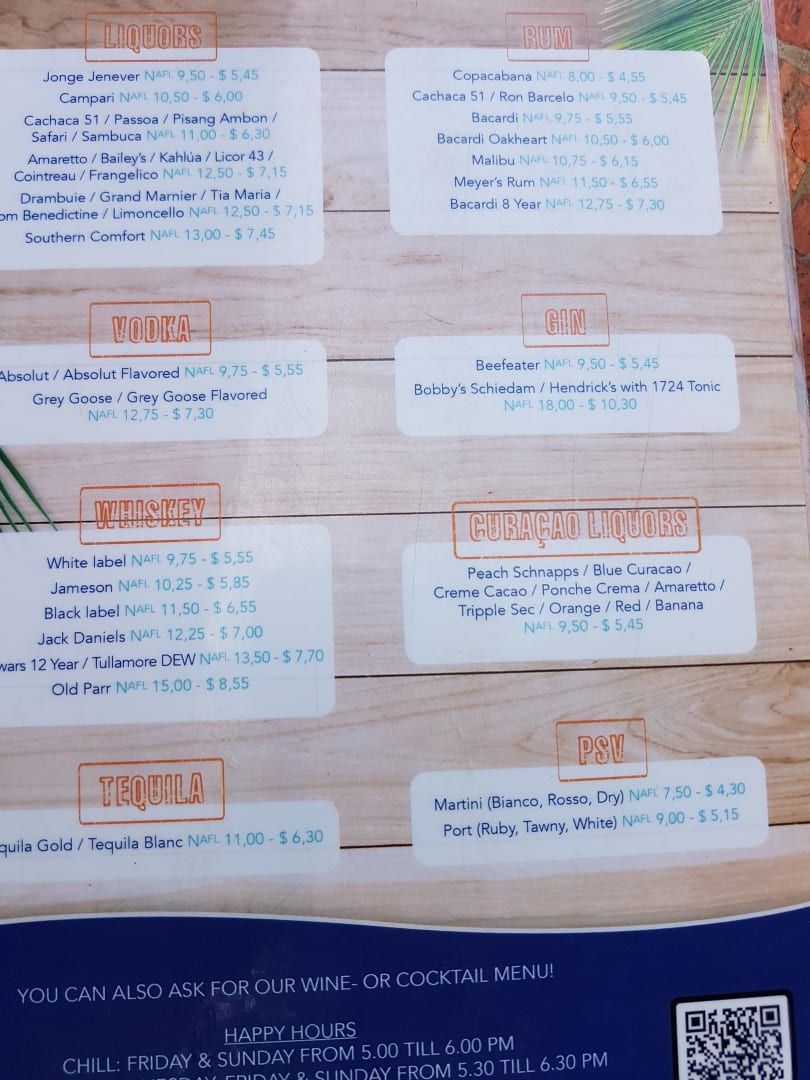 LIQUORS
Jonge Jenever NAFL 9,50 - $ 5,45
Campari NAFL 10,50 - $ 6,00
Cachaca 51 / Passoa / Pisang Ambon /
Safari / Sambuca NAFL 11,00 - $ 6,30
Amaretto / Bailey's / Kahlúa / Licor 43 /
Cointreau / Frangelico NAFL 12,50 - $ 7,15
Drambuie / Grand Marnier / Tia Maria /
om Benedictine / Limoncello NAFL 12,50 - $ 7,15
Southern Comfort NAFL 13,00 - $ 7,45
VODKA
Absolut / Absolut Flavored NAFL 9,75 - $ 5,55
Grey Goose / Grey Goose Flavored
NAFL 12,75 - $ 7,30
WHISKEY
White label NAFL 9,75 - $ 5,55
Jameson NAFL 10,25 - $ 5,85
Black label NAFL 11,50 - $ 6,55
Jack Daniels NAFL 12,25 - $ 7,00
wars 12 Year / Tullamore DEW NAFL 13,50 - $ 7,70
Old Parr NAFL 15,00 - $ 8,55
TEQUILA
quila Gold / Tequila Blanc NAFL 11,00 - $ 6,30
RUM
Copacabana NAFL 8,00 - $ 4,55
Cachaca 51 / Ron Barcelo NAFL 9,50 - $ 5,45
Bacardi NAFL 9,75 - $ 5,55
Bacardi Oakheart NAFL 10,50 - $ 6,00
Malibu NAFL 10,75 - $ 6,15
Meyer's Rum NAFL 11,50 - $ 6,55
Bacardi 8 Year NAFL 12,75 - $ 7,30
GIN
Beefeater NAFL 9,50 - $ 5,45
Bobby's Schiedam / Hendrick's with 1724 Tonic
NAFL 18,00 - $ 10,30
CURAÇAO LIQUORS
Peach Schnapps / Blue Curacao /
Creme Cacao / Ponche Crema / Amaretto /
Tripple Sec / Orange / Red / Banana
NAFL 9,50 - $ 5,45
PSV
Martini (Bianco, Rosso, Dry) NAFL 7,50 - $ 4,30
Port (Ruby, Tawny, White) NAFL 9,00 - $ 5,15
YOU CAN ALSO ASK FOR OUR WINE- OR COCKTAIL MENU!
HAPPY HOURS
CHILL: FRIDAY & SUNDAY FROM 5.00 TILL 6.00 PM
FRIDAY & SUNDAY FROM 5.30 TILL 6.30 PM